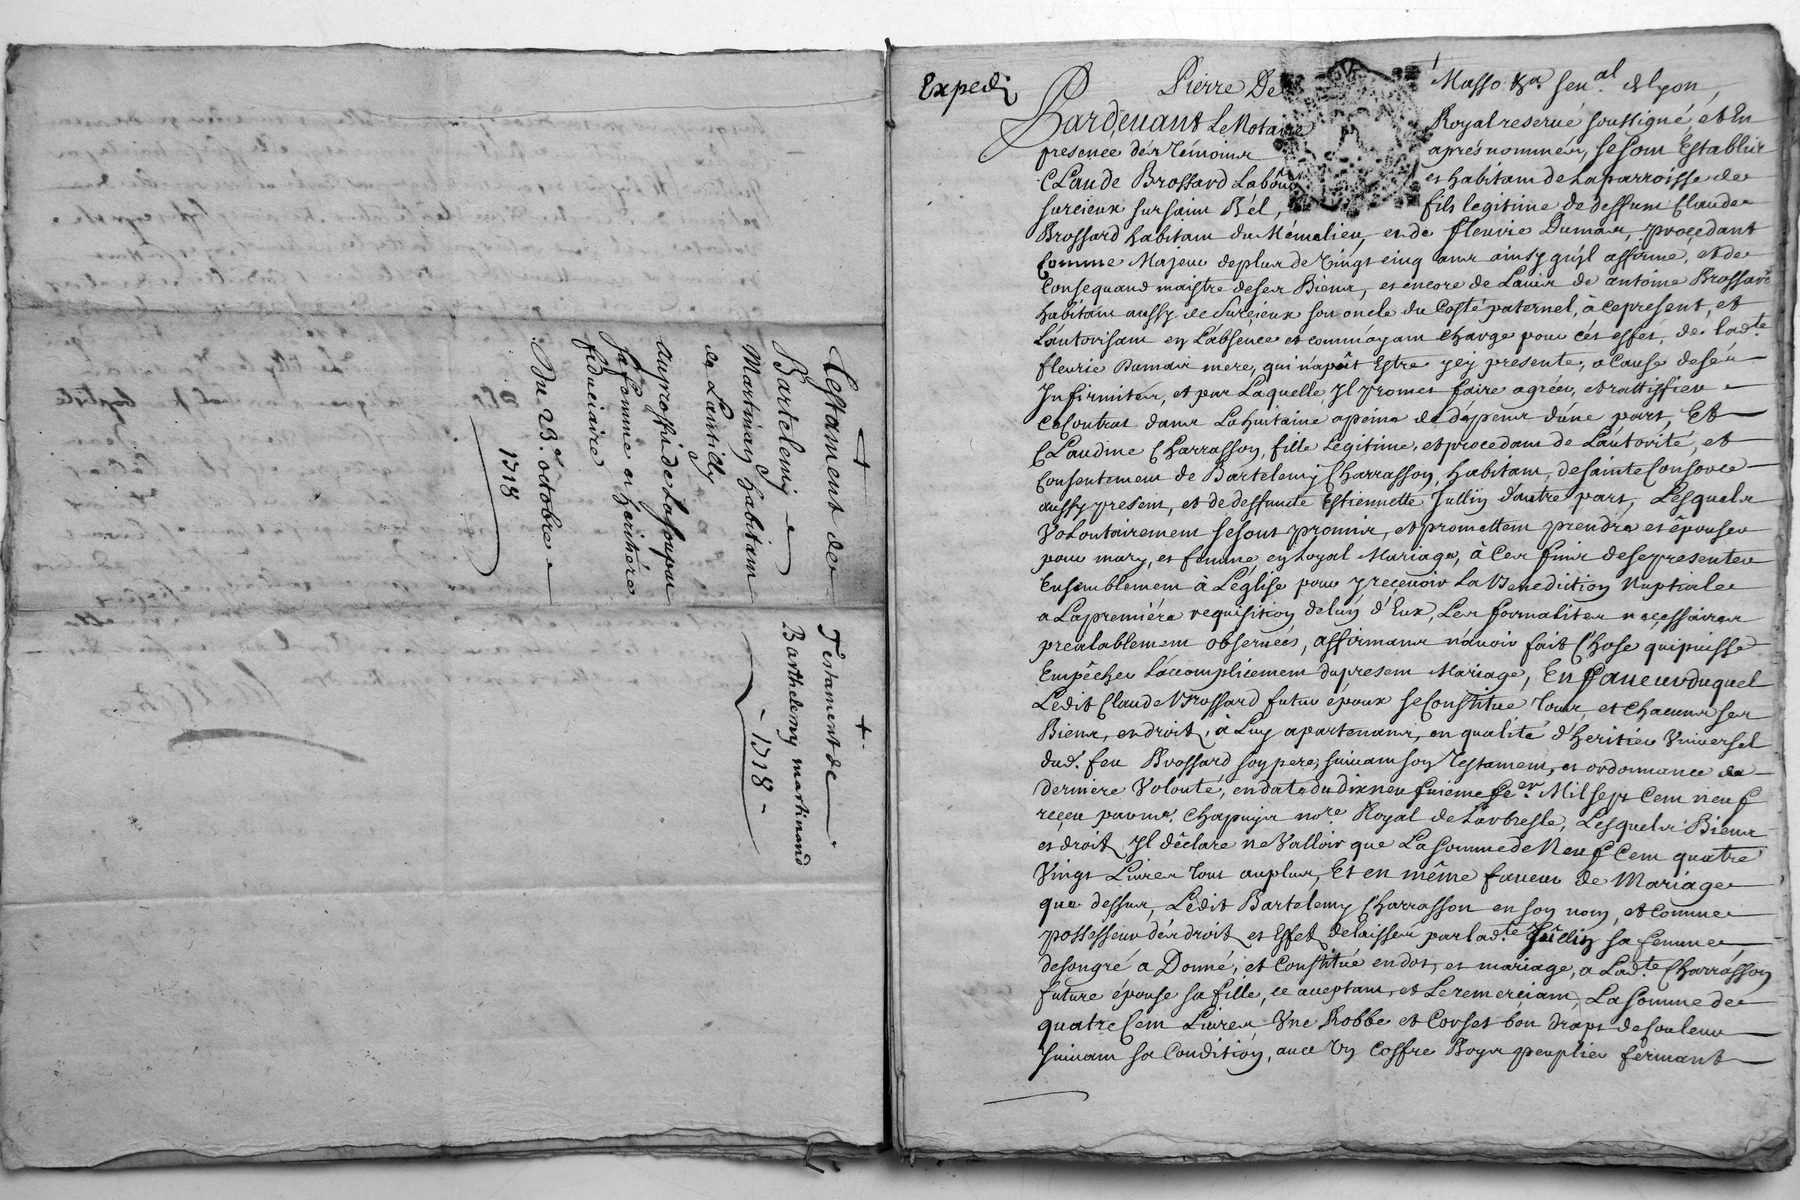 Testament de
Bartelemy
Martinay habitant
de Lantilly
au proffit de Lassoupou
sa femme en heritiere
fiduciaire
Du 23e. octobre
1718
Testament de
Barthelemy martinand
- 1718 -
Expedi
Pierre De Masso Senal. de lyon,
Pardevant Le Notaire Royal reservé soussigné, et En
presence des Témoins aprés nommés, se sont Establis
CLaude Brossard Labour et habitant de La parroisse de
surcieux sur saint Bél, fils legitime de deffunt Claude
Brossard habitant du Mémelieu, et de fleurie Dumas, procedant
Comme Majeur de plus de Vingt cinq ans ainsy qu'jl affirme, et de
Consequand maistre de ses Biens, et encore de Lavis de antoine Brossard
habitant aussy de Surcieux son oncle du Costé paternel, à ce present, et
L'autorisant en L'absence et comm'ayant charge pour cét effet, de ladte
fleurie Dumas mere, qui n'a pût Estre jcy presente, a Cause de sés
Jnfirmités, et par Laquelle jl promet faire agréer, et rattiffier
Ce Contrat dans La huitaine a peine de dépens d'une part, Et
CLaudine Charrasson, fille Legitime, et procedant de L'autorité, et
Consentement de Bartelemy Charrasson, habitant de sainte Consorce
aussy present, et de deffunte Estiennette Jullin d'autre part, Lesquels
Volontairement se sont promis, et promettent prendre et épouser
pour mary, et femme, en Loyal Mariage, à Ces fins de se presenter
Ensemblement à L'église pour y reçevoir La Benediction Nuptiale
a La premiére requisition de Lun d'Eux, Les formalites neçessaires
prealablement observées, affirmans n'avoir fait Chose qui puisse
Empêcher L'accomplicement du present Mariage, En faveur duquel
Ledit Claude Brossard futur époux se Constitue Tous, et Chacuns ses
Biens, et droit, à Luy apartenans, en qualité d'heritier Universel
dud. feu Brossard son pere, suivant son Testament, et ordonnance de
derniere Volonté, en date du dix neufuieme fer. Mil sept Cent neuf
reçeu par me. Chapuys nore Royal de Larbresle, Lesquels Biens
et droit Jl déclare ne Valloir que La somme de Neuf Cent quatre
Vingt Livres Tout au plus, Et en même faveur de Mariage
que dessus, Ledit Bartelemy Charrasson en son nom, et Comme
possesseur dés droit et Effet delaissés par ladte Jullin sa femme,
de son gré a Donné, et Constitué en dot, et mariage, a Ladte Charrasson
future épouse sa fille, ce aceptant, et Le remerçiant, La somme de
quatre Cent Livres Une Robbe et Corset bon draps de Couleur
suivant sa Condition, avec Un Coffre Boys peuplier fermant